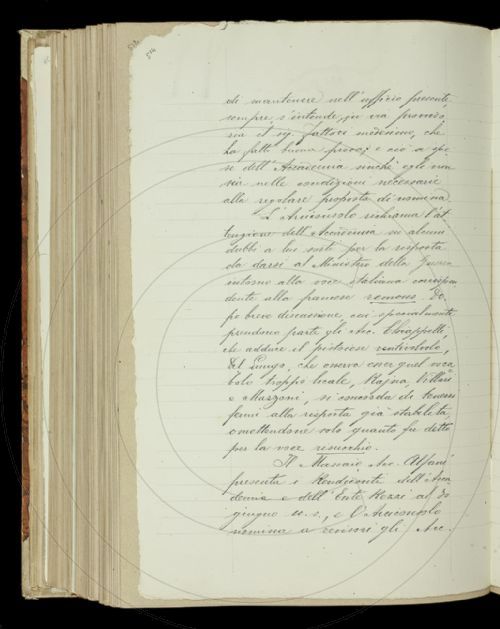 514
di mantenere nell'ufficio presente,
sempre, s'intende, in via provviso,
ria il sig. Fattori medesimo, che
ha fatto buona prova; e ciò a spe
se dell'Accademia finchè egli non
sia nelle condizioni necessarie
alla regolare proposta di nomina.
L'Arciconsolo richiama l'at-
tenzione dell'Accademia su alcuni
dubbi a lui sorti per la risposta
da darsi al Ministero della Guerra
intorno alla voce italiana corrispon
dente alla francese remous. Do-
po breve discussione, cui specialmente
prendono parte gli Acc. Chiappelli,
che adduce il pistoiese
Del Lungo, che osserva esser quel voca
bolo troppo locale, Rajna, Villari
e Mazzoni, si concorda di tenersi
fermi alla risposta già stabilita,
omettendone solo quanto fu detto
per la voce risucchio.
Il Massaio, Acc. Alfani
presenta i Rendiconti dell'Acca
demia e dell'Ente Rezzi al 30
giugno u. s., e l'Arciconsolo
nomina a revisori gli Acc.